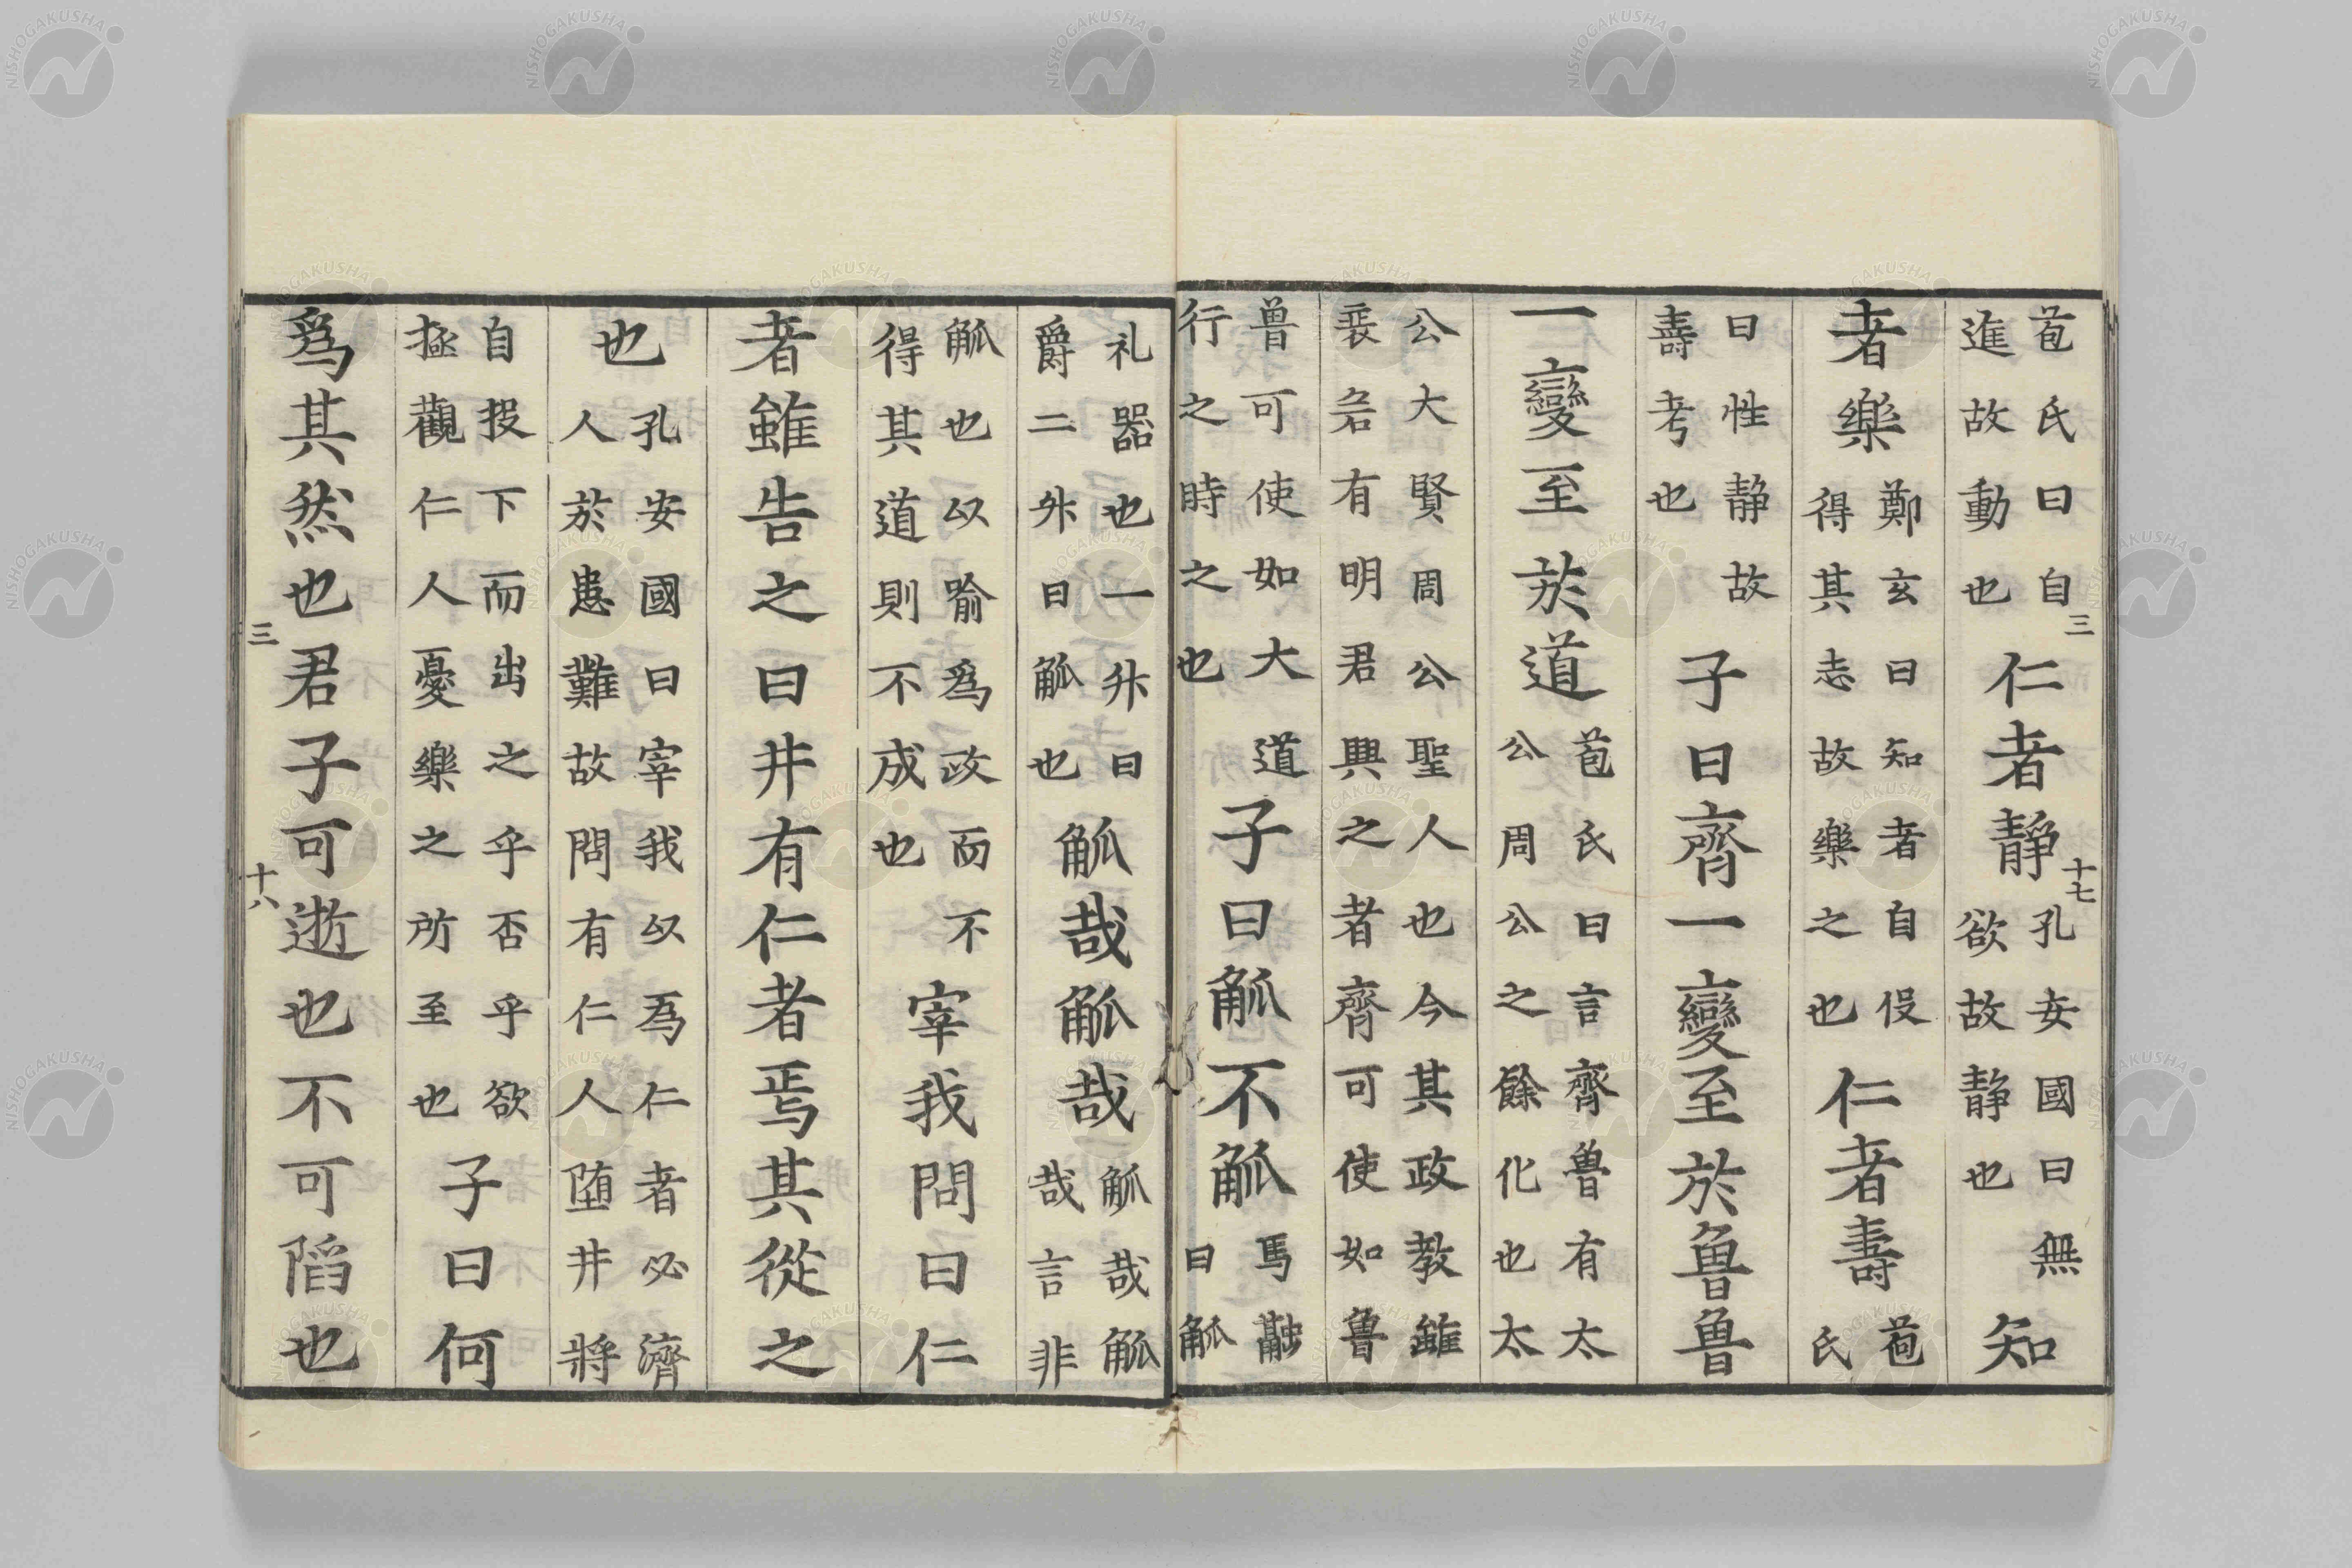 苞氏曰自進故動也仁者静孔安國曰無欲故静也知
者樂鄭玄曰知者自伇得其志故樂之也仁者壽苞氏
曰性静故壽考也子曰齊一變至於魯魯
一變至於道苞氏曰言齊魯有太公周公之餘化也太
公大賢周公聖人也今其政教雖衰若有明君興之者齊可使如魯
魯可使如大道行之時之也子曰觚不觚馬融曰觚
三
十七
礼器也一升曰爵二升曰觚也觚哉觚哉觚哉觚哉言非
觚也以喻爲政而不得其道則不成也宰我問曰仁
者雖告之曰井有仁者焉其從之
也孔安國曰宰我以爲仁者必濟人於患難故問有仁人堕井將
自投下而出之乎否乎欲極觀仁人憂樂之所至也子曰何
爲其然也君子可逝也不可陷也
三
十八
NISHOGAKUSHA